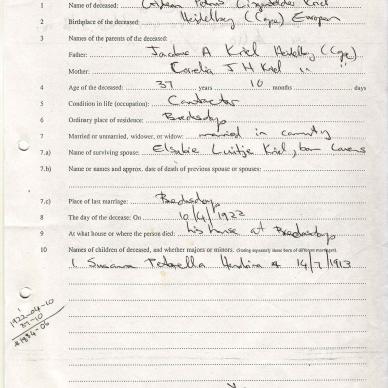 1 Name of deceased: Kriel
2 Birthplace of the deceased: Heidelberg (Cape) European
3 Names of the parents of the deceased:
Father: Jacobus A Kriel Heidelberg (Cape)
Mother: Cornelia J H Kriel " "
4 Age of the deceased: 37 years 10 months days
5 Condition in life (occupation): Contractor
6 Ordinary place of residence: Bredasdorp
7 Married or unmarried, widower, or widow: married in community
7.a) Name of surviving spouse: Kriel, born
7.b) Name or names and approx. date of death of previous spouse or spouses:
7.c) Place of last marriage: Bredasdorp
8 The day of the deceased: On 10/4/1922
9 At what house or where the person died: his house at Bredasdorp
10 Names of children of deceased, and whether majors or minors. (Stating separately those born of different marriages).
1 Susanna Petronella Hendrina * 14/7/1913
1922-04-10
37-10
*1884-06